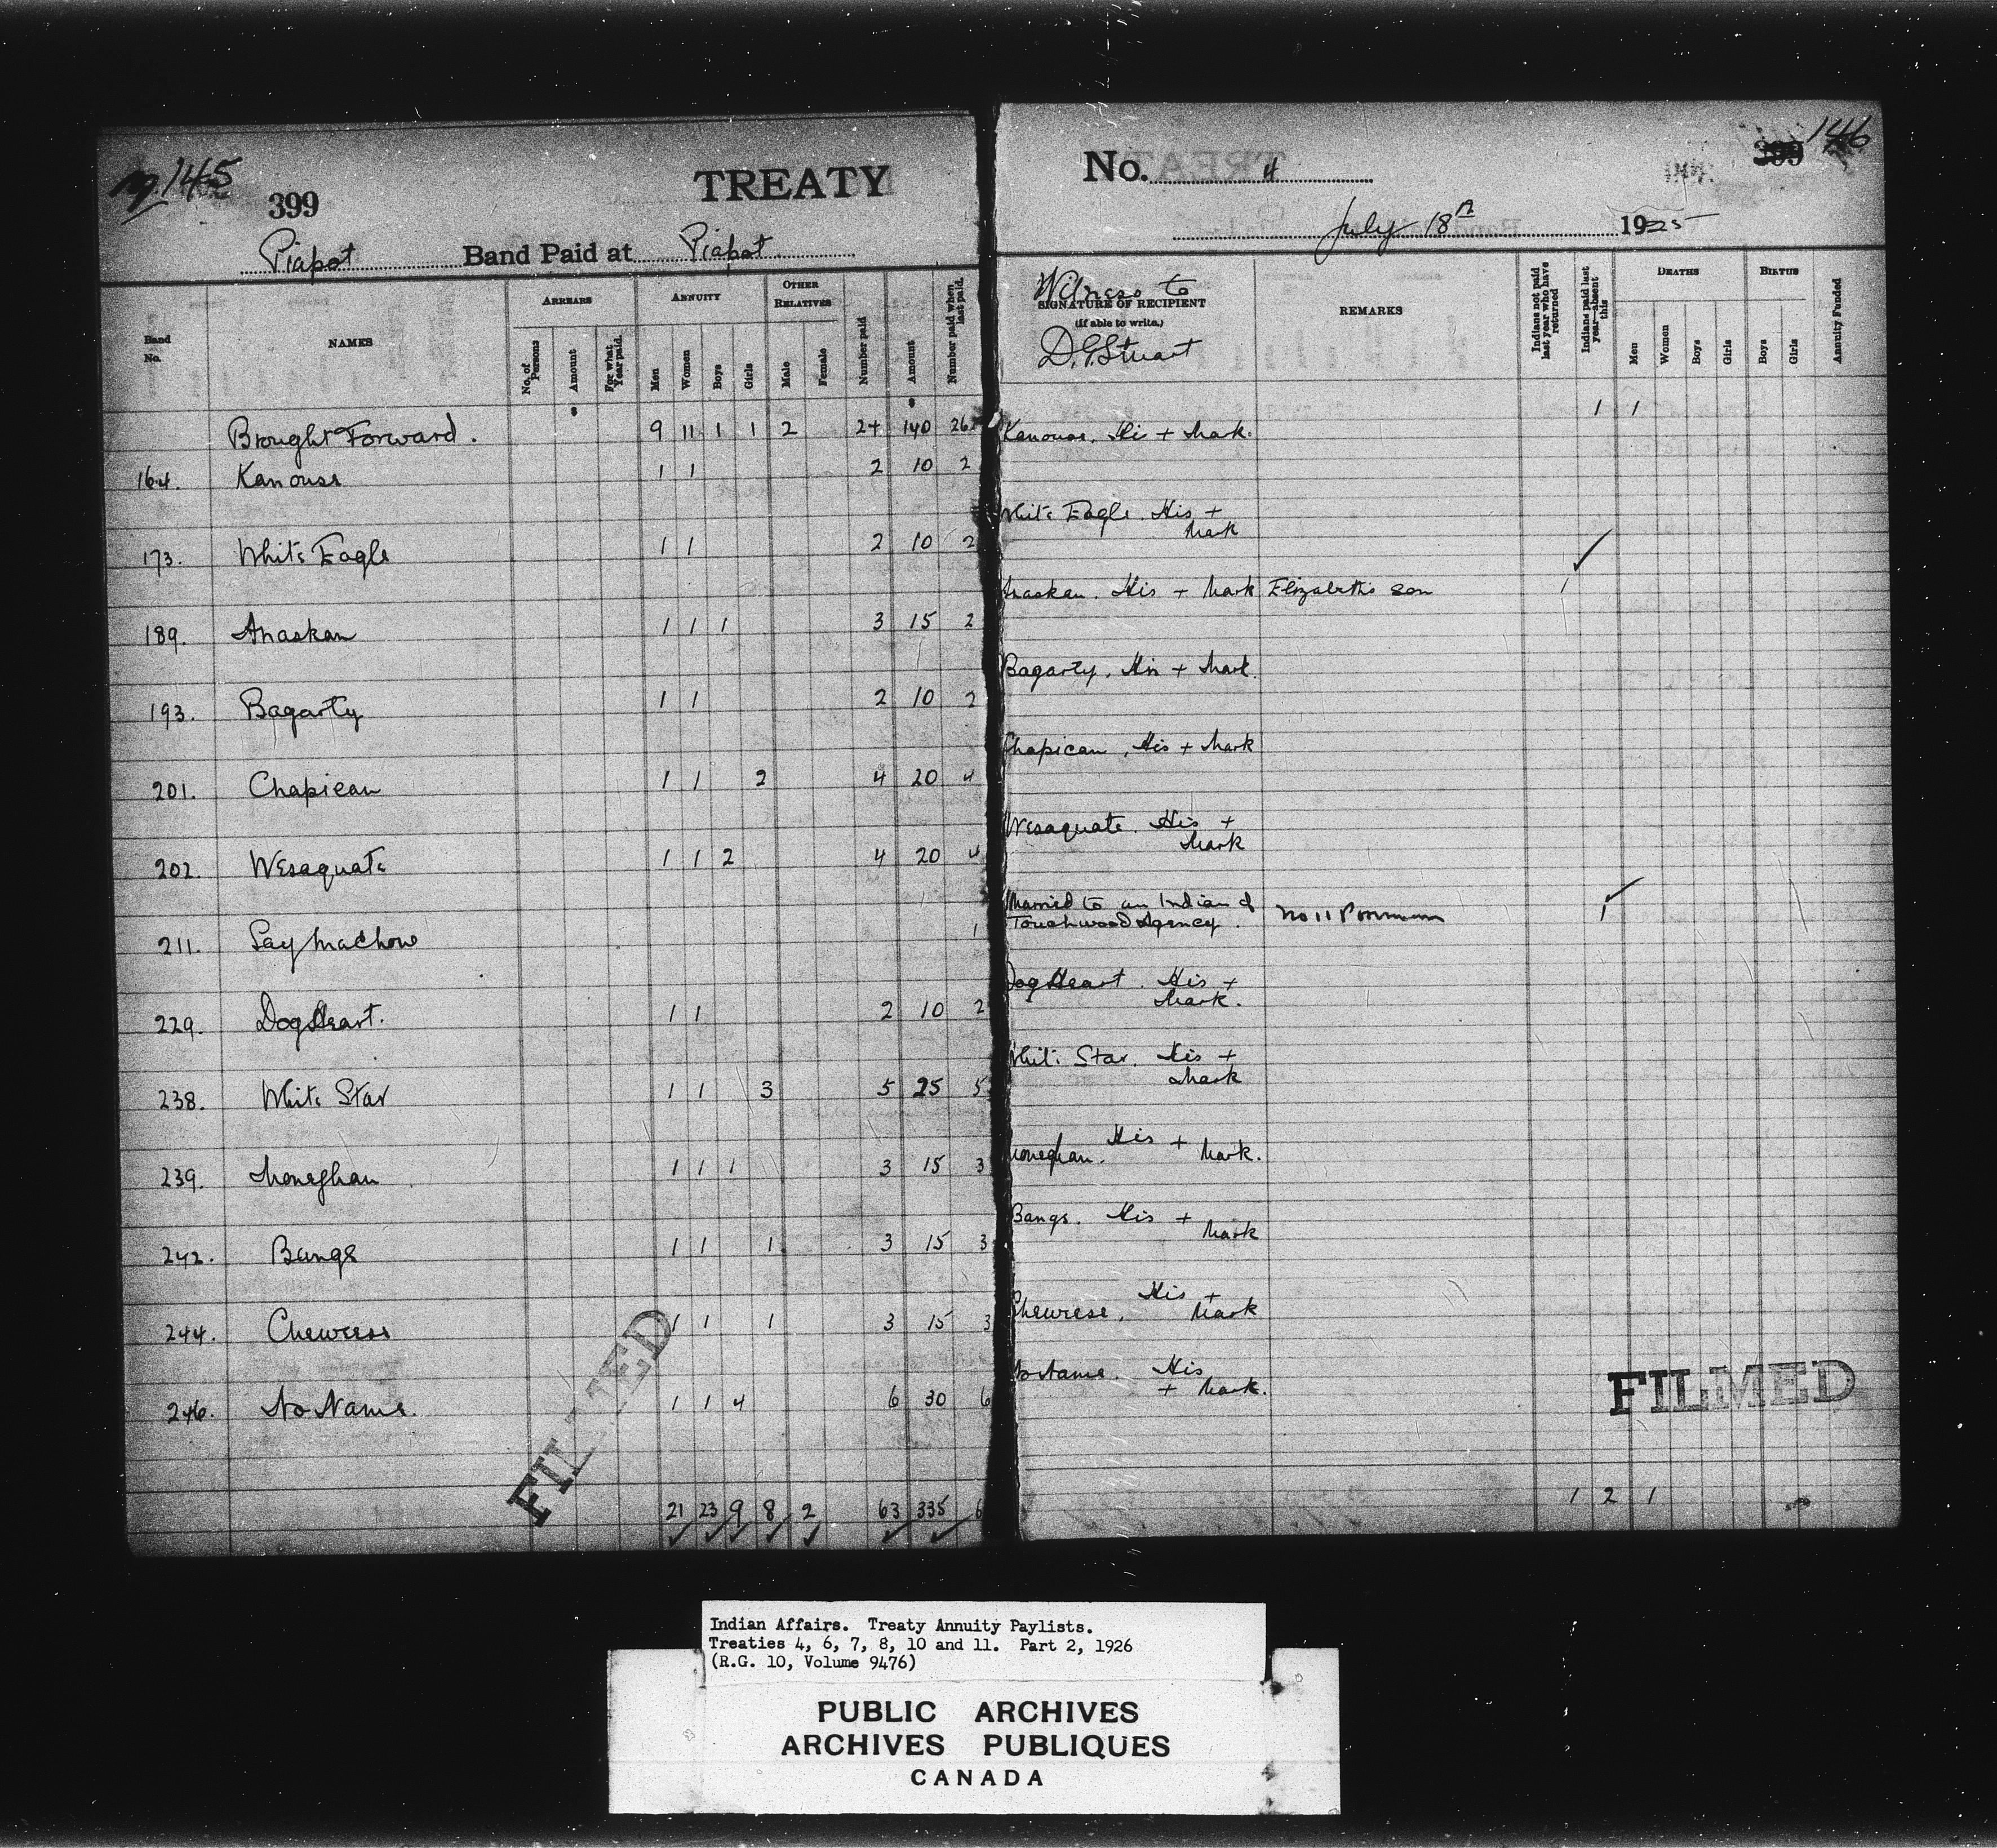 145
399
TREATY
Piapot Band Paid at Piapot
Band No.
NAMES
ARREARS
No. of Persons
Amount
For what Year paid.
ANNUITY
Men
Women
Boys
Girls
OTHER RELATIVES
Male
Female
Number paid
Amount
Number paid when last paid.
Brought Forward. 9 11 1 1 2 24 140 26
164. Kanouse 1 1 2 10 2
173. White Eagle 1 1 2 10 2
189. Anaskan 1 1 1 3 15 2
193. Bagarty 1 1 2 10 2
201. Chapican 1 1 2 4 20 4
202. Wesaquate 1 1 2 4 20 4
211. Say Machow 1
229. Dog Heart. 1 1 2 10 2
238. White Star 1 1 3 5 25 5
239. Moneghan 1 1 1 3 15 3
242. Bangs 1 1 1 3 15 3
244. Cheweese 1 1 1 3 15 3
246. No Name. 1 1 4 6 30 6
21 23 9 8 2 63 335 6
FILMED
No. 4
399 146
July 18th 1925
Witness to
SIGNATURE OF RECIPIENT
(if able to write.)
D.G. Stuart
REMARKS
Indians not paid last year who have returned
Indians paid last year—absent this
DEATHS
Men
Women
Boys
Girls
BIRTHS
Boys
Girls
Annuity Funded
1 1
Kanouse. His + Mark.
White Eagle. His +
Mark
Anaskan. His + Mark Elizabeth's son 1
Bagarty. His + Mark.
Chapican. His + Mark
Wesaquate. His +
Mark
Married to an Indian of
Touchwood Agency. No 11 1
Dog Heart. His +
Mark.
White Star. His +
Mark
Moneghan. His + Mark.
Bangs. His +
Mark
Cheweese. His +
Mark
No Name. His
+ Mark.
FILMED
1 2 1
Indian Affairs. Treaty Annuity Paylists.
Treaties 4, 6, 7, 8, 10 and 11. Part 2, 1926
(R.G. 10, Volume 9476)
PUBLIC ARCHIVES
ARCHIVES PUBLIQUES
CANADA